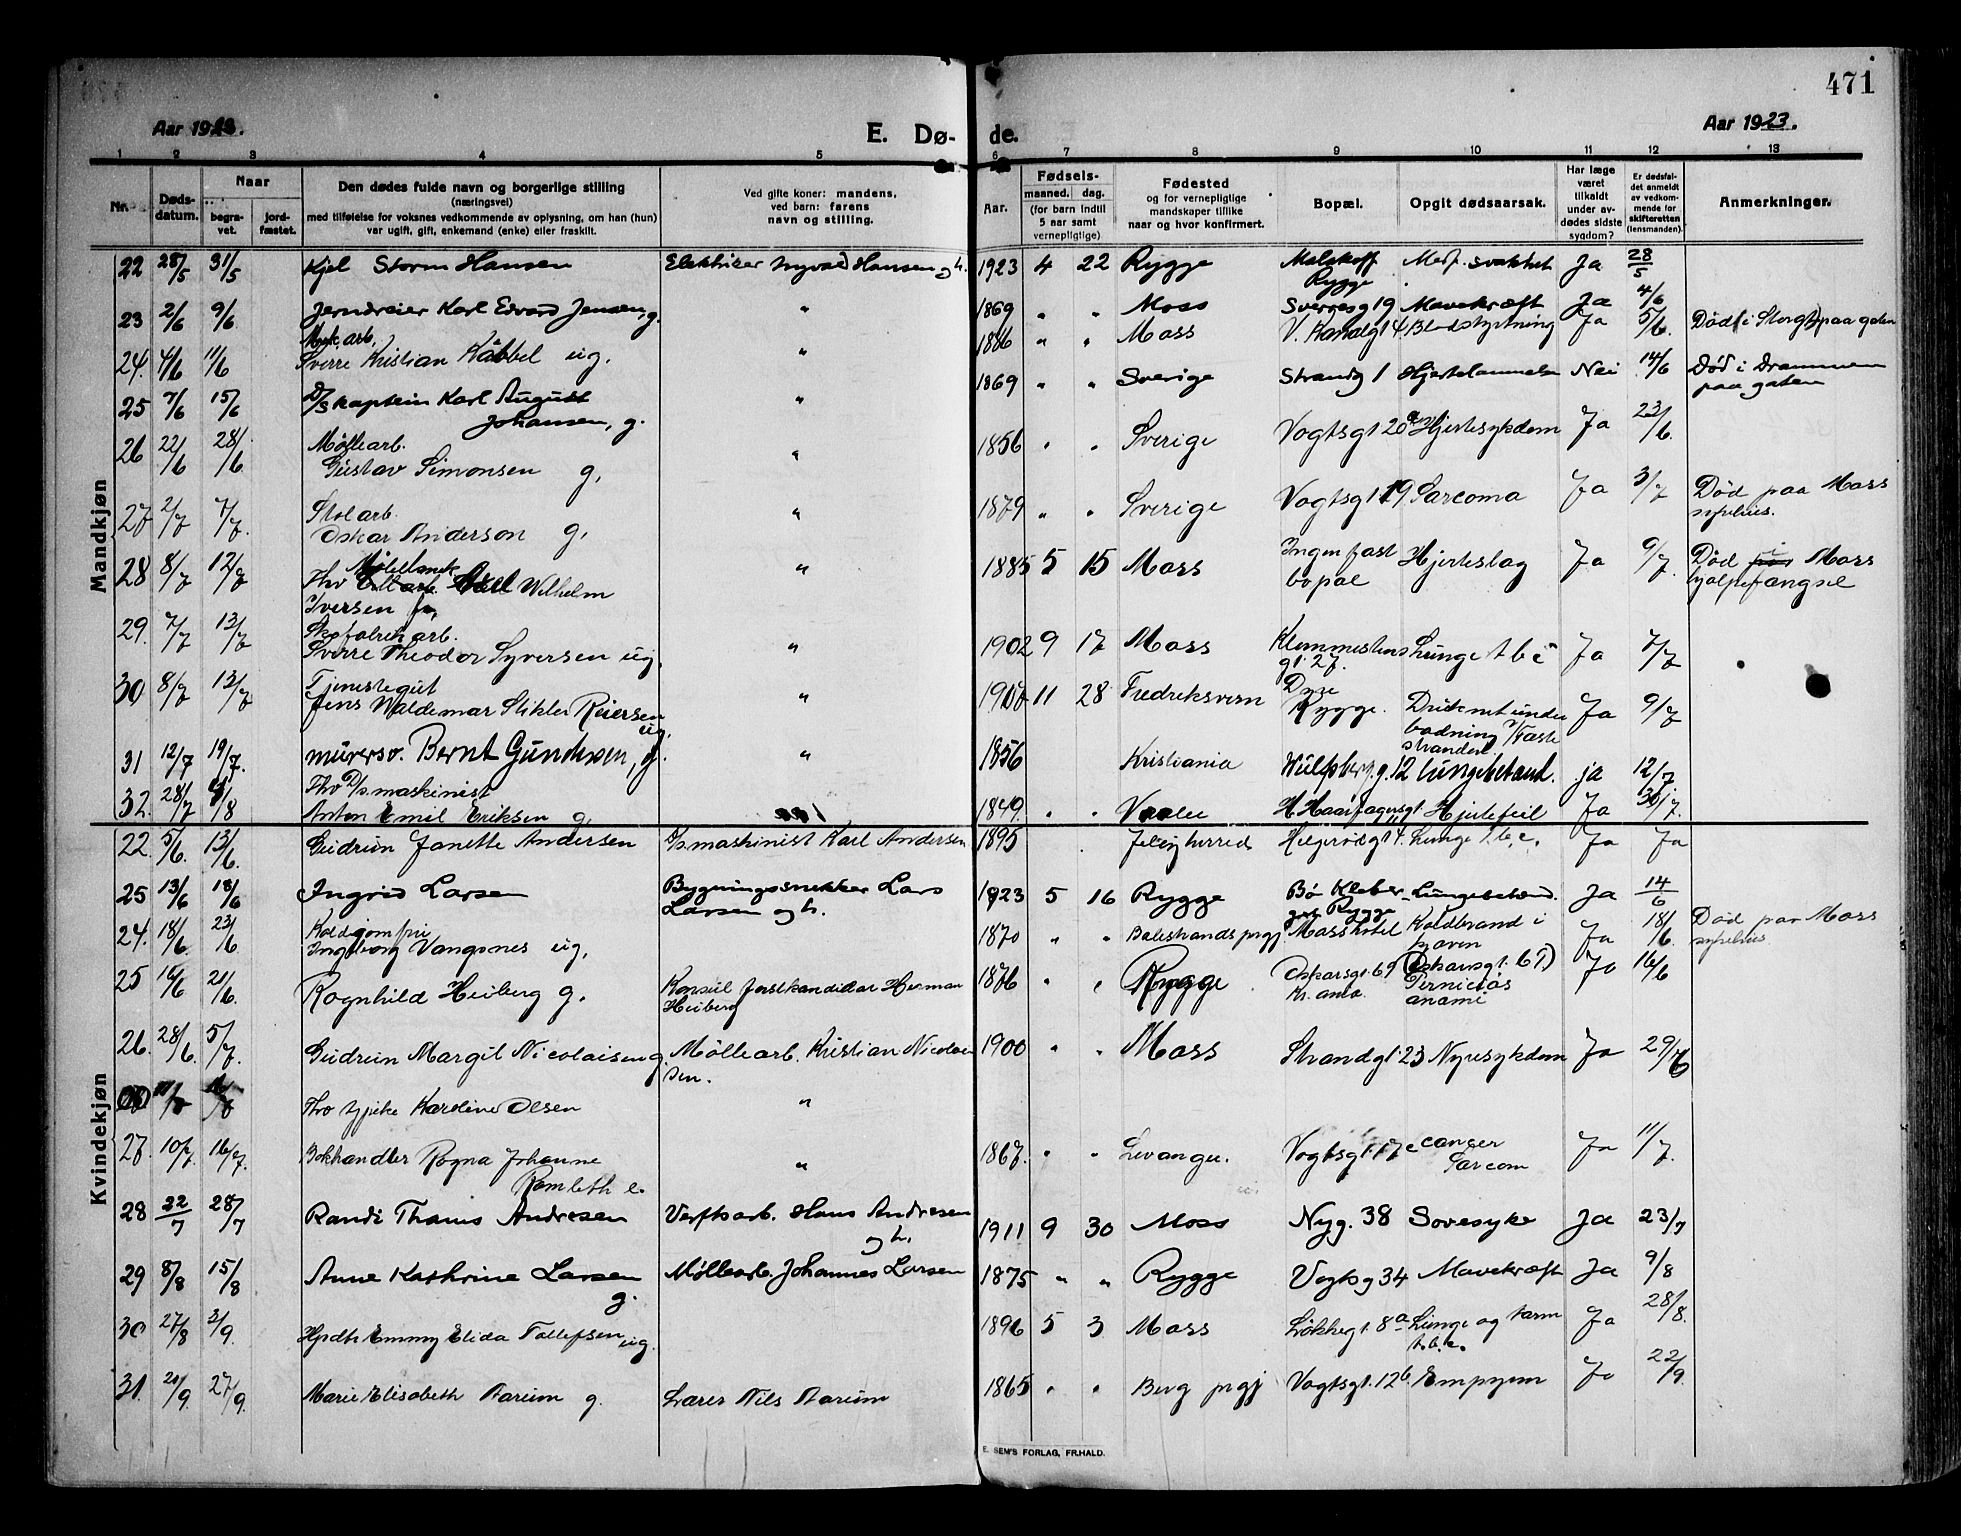 471
Aar 19
E. Dø-
de.
Aar 1923.
1 2 3 4 5 6 7 8 9 10 11 12 13
Nr.
Døds-
datum.
Naar
begra-
vet.
jord-
fæstet.
Den dødes fulde navn og borgerlige stilling
(næringsvei)
med tilføielse for voksnes vedkommende av oplysning, om han (hun)
var ugift, gift, enkemand (enke) eller fraskilt.
Ved gifte koner: mandens,
ved barn: farens
navn og stilling.
Aar.
Fødsels-
maaned. dag.
(for barn indtil
5 aar samt
vernepligtige)
Fødested
og for vernepligtige
mandskaper tillike
naar og hvor konfirmert.
Bopæl.
Opgit dødsaarsak.
Har læge
været
tilkaldt
under av-
dødes sidste
sygdom?
Er dødsfal-
det anmeldt
av vedkom-
mende for
skifteretten
(lensmanden).
Anmerkninger.
Mandkjøn
22 28/5 31/5 Kjel Storm Hansen Elektriker Hansen og h. 1923 4 22 Rygge Malakoff Medf. svakhet Ja 28/5
Rygge
23 2/6 9/6 Jerndreier Karl Edvard Jensen, g. " 1869 " " Moss Sverresg 19 Mavekræft Ja 4/6
24. 4/6 11/6 arb.
Sverre Kristian Kabbel ug. " 1886 " " Moss V. Kanalgt 4. Blodstyrtning Ja 5/6. Død i Storgt paa gaten
25 7/6 15/6 D/S kaptein Karl August
Johansen, g. " 1869 " " Sverige Strandg 1 Hjertelammelse Nei 14/6 Død i Drammen
paa gaten
26 22/6 28/6 Møllearb.
Gustav Simonsen g. " 1856 " " Sverige Vogtsgt 20 Hjertesykdom Ja 23/6.
27 2/7 7/7. Stolarb.
Oskar Anderson g. " 1879 " " Sverige Vogtsgt 19 Sarcoma Ja 3/7 Død paa Moss
sykehus.
28 8/7 12/7 Thv Wilhelm
Iversen " 1885 5 15 Moss Ingen fast Hjerteslag Ja 9/7. Død i Moss
bopæl hjælpefængsel
29. 7/7 13/7 Skofabrikarb.
Sverre Theodor Syversen ug. " 1902 9 17 Moss Klommestens Lunge tbc Ja 7/7
gt. 27.
30 8/7 13/7 Tjenestegut
Jens Waldemar Stikler Reiersen
ug. " 11 28 Fredriksvern Dyre
Rygge. Druknet under
badning v/
Ja 9/7
31 12/7 19/7. murersv. Bernt Gundersen, g. " 1856 Kristiania Wulfsbergg. 12 Lungebetænd. ja 12/7
32. 28/7 /8 Thv D/S. maskinist
Anton Emil Eriksen g. 1849. " " Vaaler H. Haarfagersgt. Hjertefeil Ja 30/7.
Kvindekjøn
22. 5/6. 13/6. Gudrun Janette Andersen D/s. maskinist Karl Andersen 1895 Jeløy herred Helgerødgt 4. Lunge t.b.c. Ja Ja
25 13/6 18/6 Ingrid Larsen Bygningssnekker Lars
Larsen og h. 1923 5 16 Rygge Bø Kleber-
Rygge Lungebetænd. Ja 14/6
24. 18/6. 23/6 Koldjomfru
Ingeborg Vangsnes ug. 1870 " " Balestrands prgj. Moss hotel Koldbrand i
tarmen Ja 18/6. Død paa Moss
sykehus
25 16/6 21/6. Ragnhild Heiberg g. Konsul forstkandidat Herman
Heiberg 1876 " " Rygge Oskarsgt. 69 (Oskarsgt. 67)
Kr. ania. Perniciøs
anæmi Ja 16/6
26. 28/6. 5/7. Gudrun Margit Nicolaisen g. Møllearb. Kristian Nicolai
sen. 1900 " " Moss Strandgt. 23 Nyresykdom Ja 29/6
Thv Karoline Olsen "
27. 10/7. 16/7. Bokhandler Ragna Johanne
Ramleth e. " 1867. " " Levanger. Vogtsgt. 17c cancer
Sarcom Ja 11/7.
28 22/7 28/7 Randi Thams Andresen Verftsarb. Hans Andresen
og h. 1911 9 30 Moss Nyg. 38 Sovesyke Ja 23/7
29 8/8 15/8 Anne Kathrine Larsen
g. Møllearb. Johannes Larsen 1875 " " Rygge Vogtsg 34 Mavekræft Ja 9/8
30 27/8 3/9. Hjdtr. Emmy Elida Tollefsen, ug. 1896 5 3 Moss Løkkegt. 8a Lunge og tarm
t.b.c. Ja 28/8.
31. 21/9. 27/9. Marie Elisabeth Aarum g. Lærer Nils Aarum 1865 " " Berg prgj Vogtsgt. 12b Empyem Ja 22/9.
E. SEM'S FORLAG, FR.HALD.